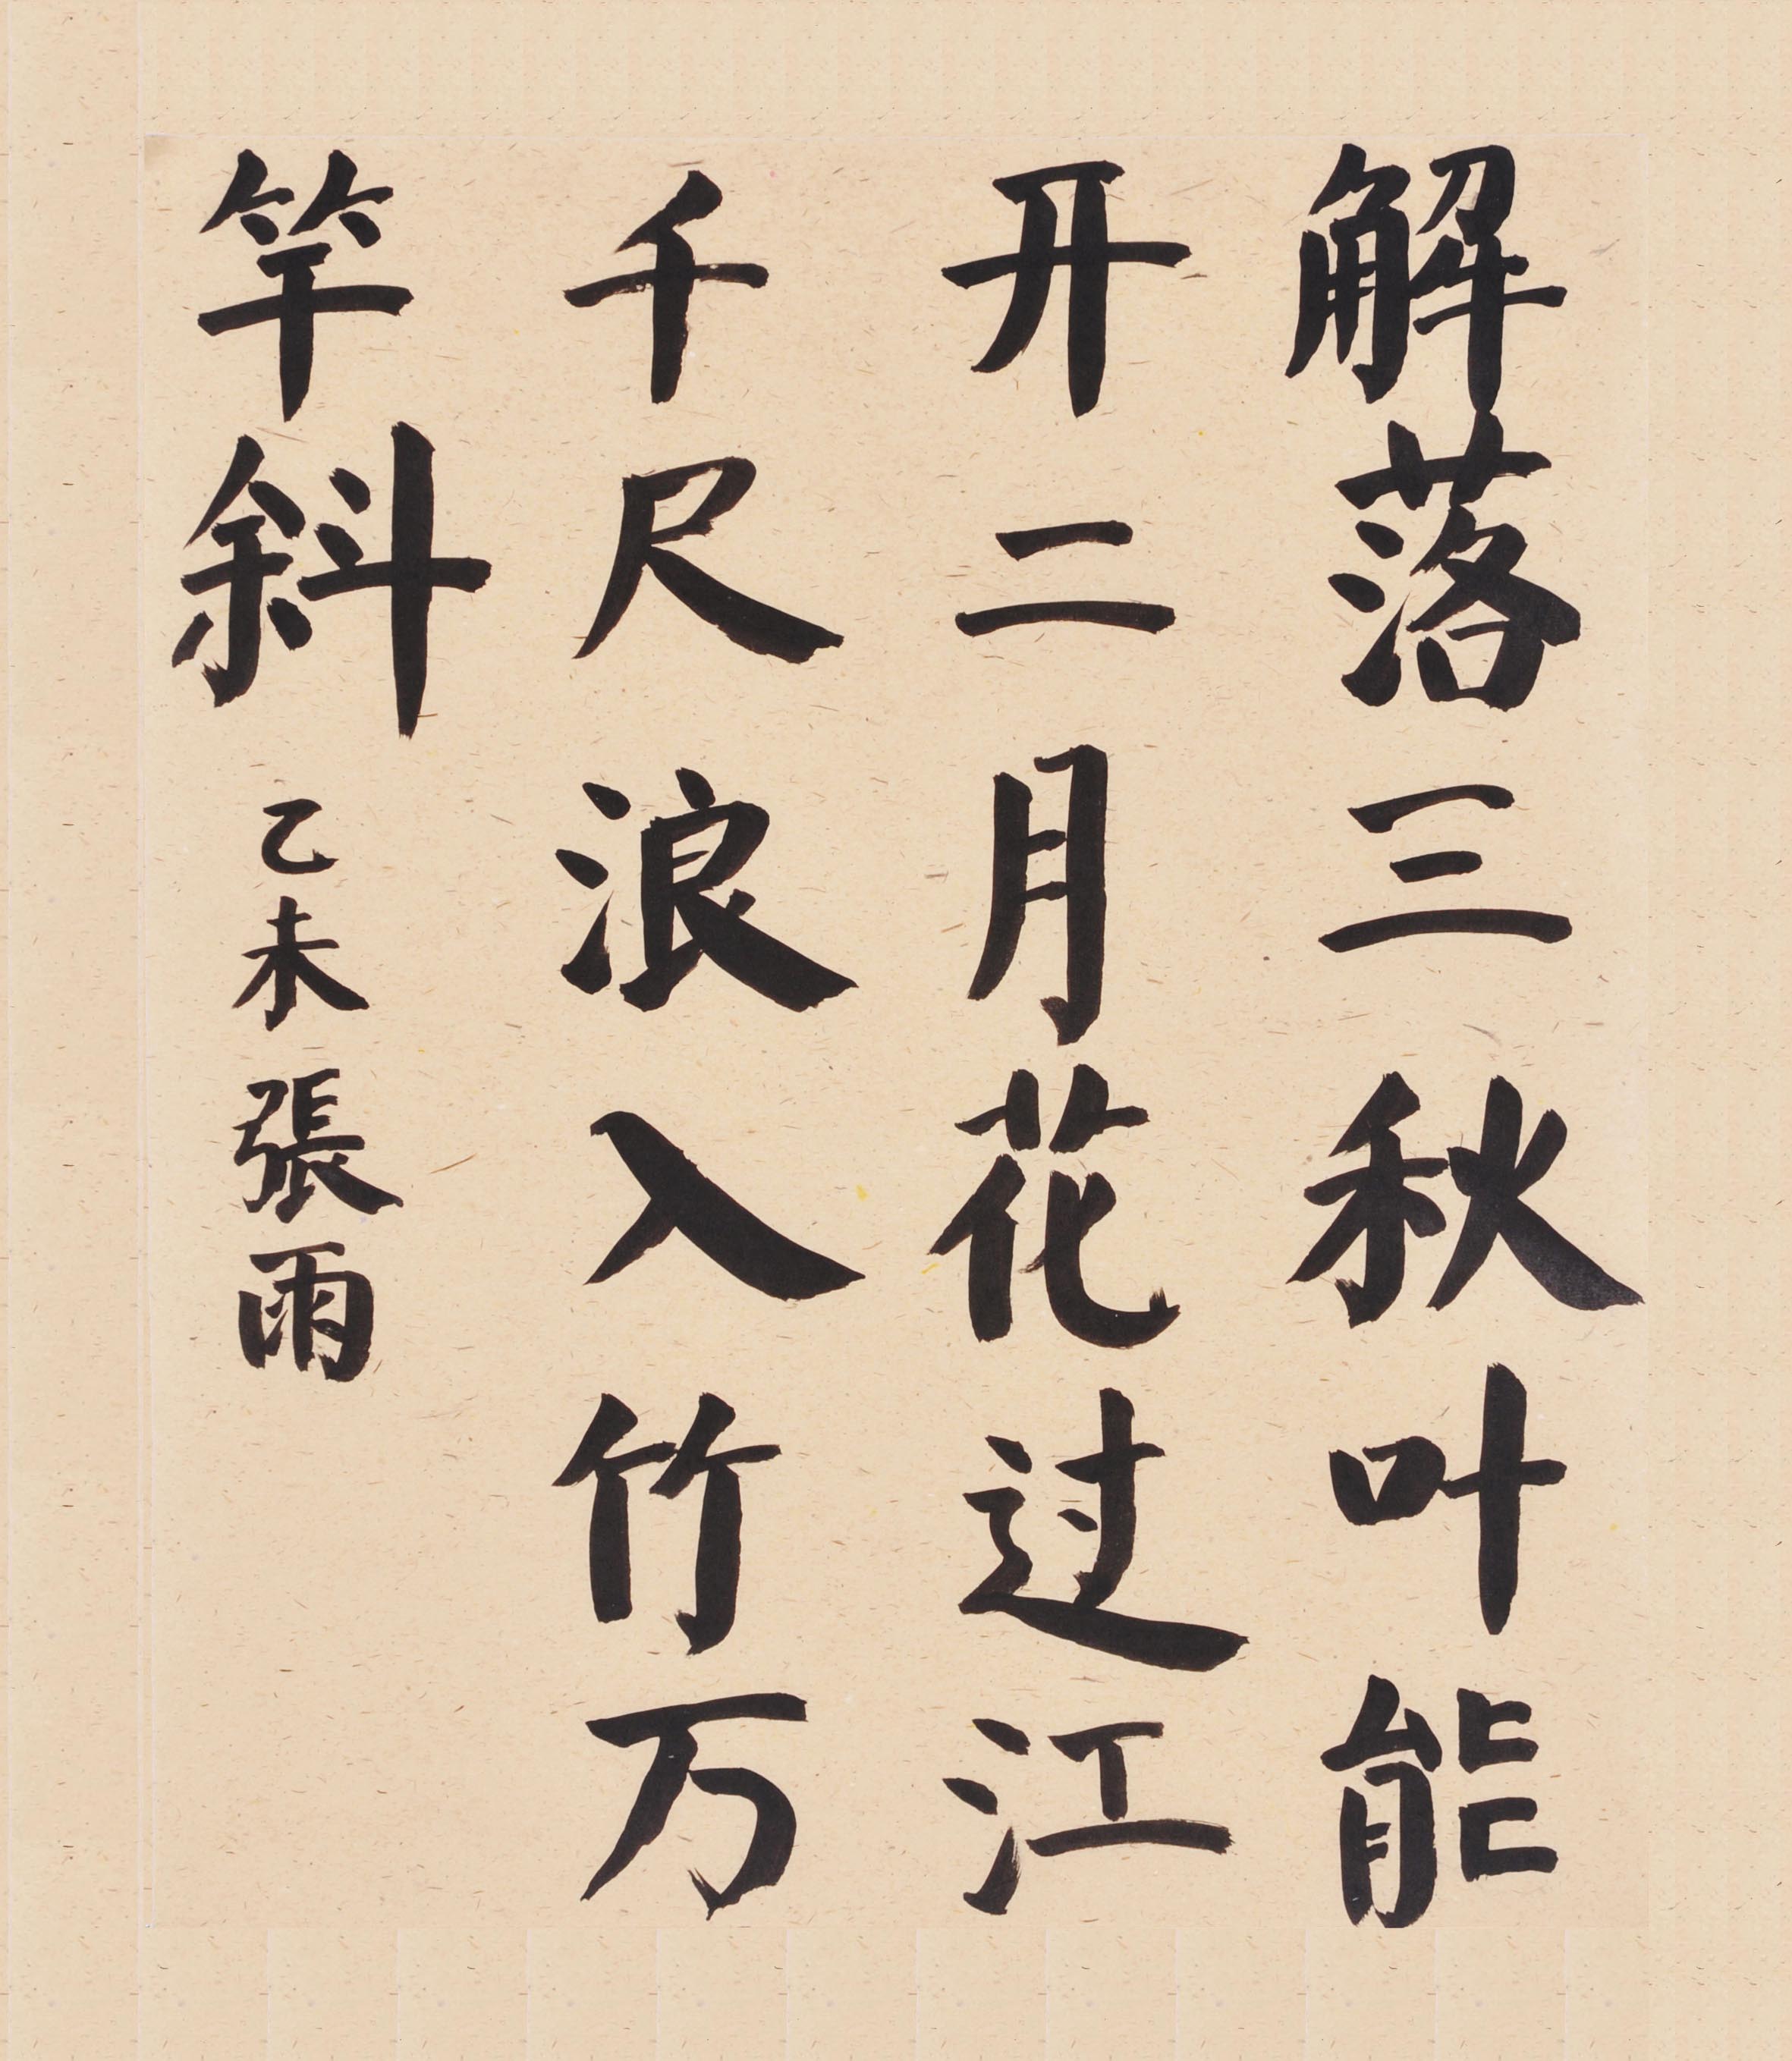 解落三秋叶能
开二月花过江
千尺浪入竹万
竿斜
乙未
張雨